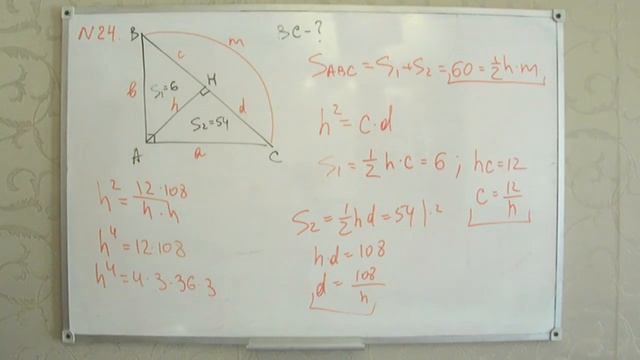 N24.
ЗС-?
B
m
c
b
S₁=6
H
h
d
S₂=54
A
a
C
S_ABC = S₁+S₂ = 60 = ½h·m
h² = c·d
S₁ = ½h·c = 6 ; hc = 12
c = 12/h
S₂ = ½hd = 54 |·2
h·d = 108
d = 108/h
h² = 12·108/h·h
h⁴ = 12·108
h⁴ = 4·3·36·3